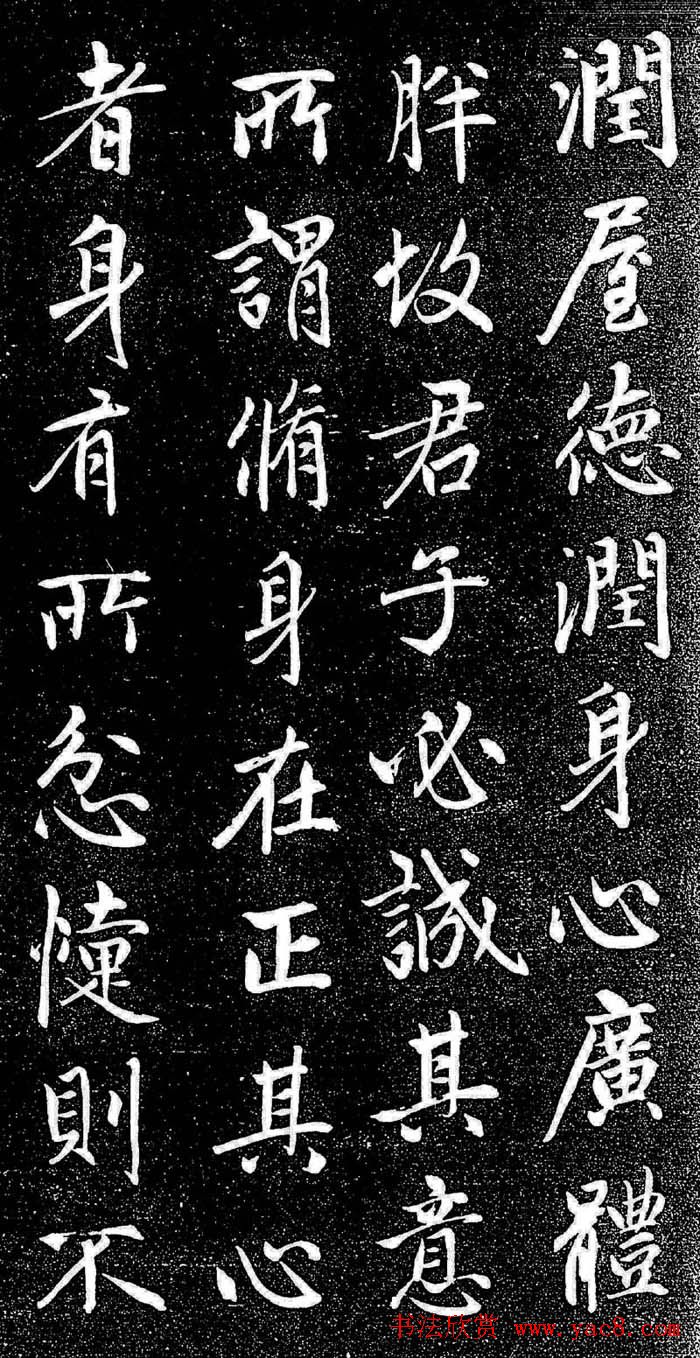 潤屋德潤身心廣體
胖故君子必誠其意
所謂脩身在正其心
者身有所忿懥則不
书法欣赏 www.yac8.com